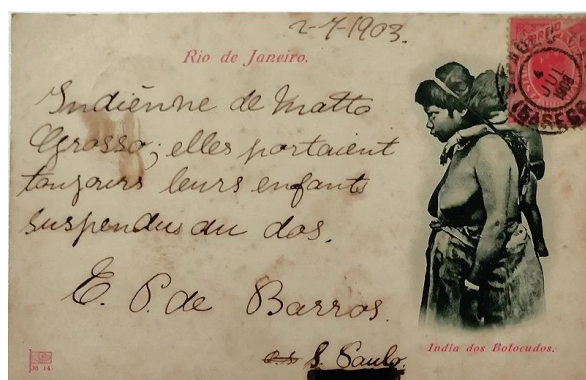 2-7-1903.
Rio de Janeiro.
Indiénne de Matto
Grosso; elles portaient
toujours leurs enfants
suspendus au dos.
E. P. de Barros.
S. Paulo.
India dos Botocudos.
No 14.
4
JUL